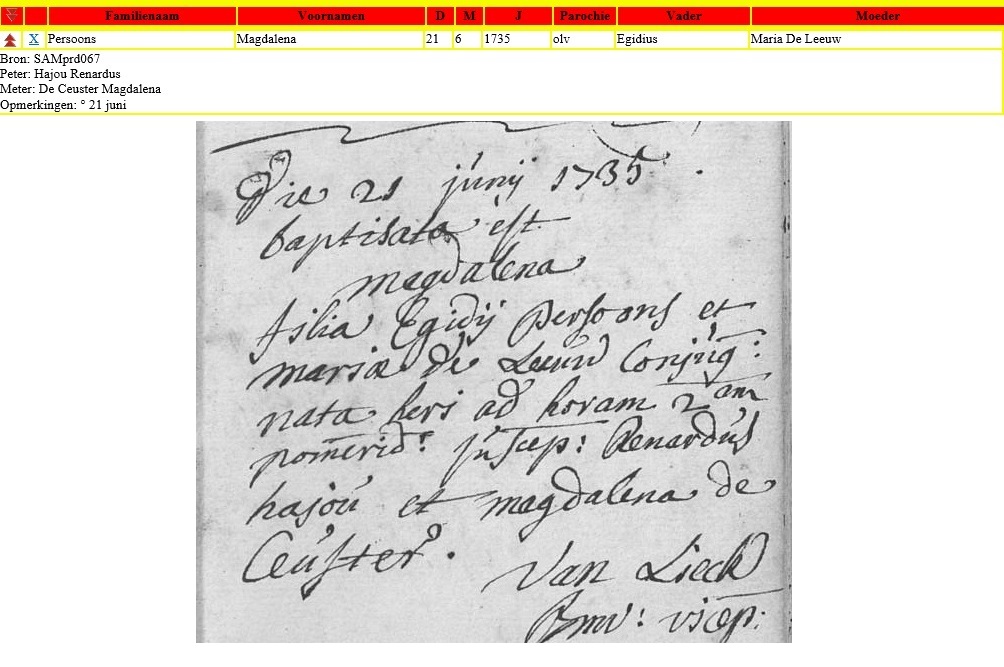 Familienaam Voornamen D M J Parochie Vader Moeder
X Persoons Magdalena 21 6 1735 olv Egidius Maria De Leeuw
Bron: SAMprd067
Peter: Hajou Renardus
Meter: De Ceuster Magdalena
Opmerkingen: ° 21 juni
Die 21 junij 1735 .
baptisata est
magdalena
filia Egidij Persoons et
mariæ de Leeuw Conjug:
nata heri ad horam 2am
pomerid: suscep: Renardus
hajou et magdalena de
Ceuster.
Van Lieck
vicep: